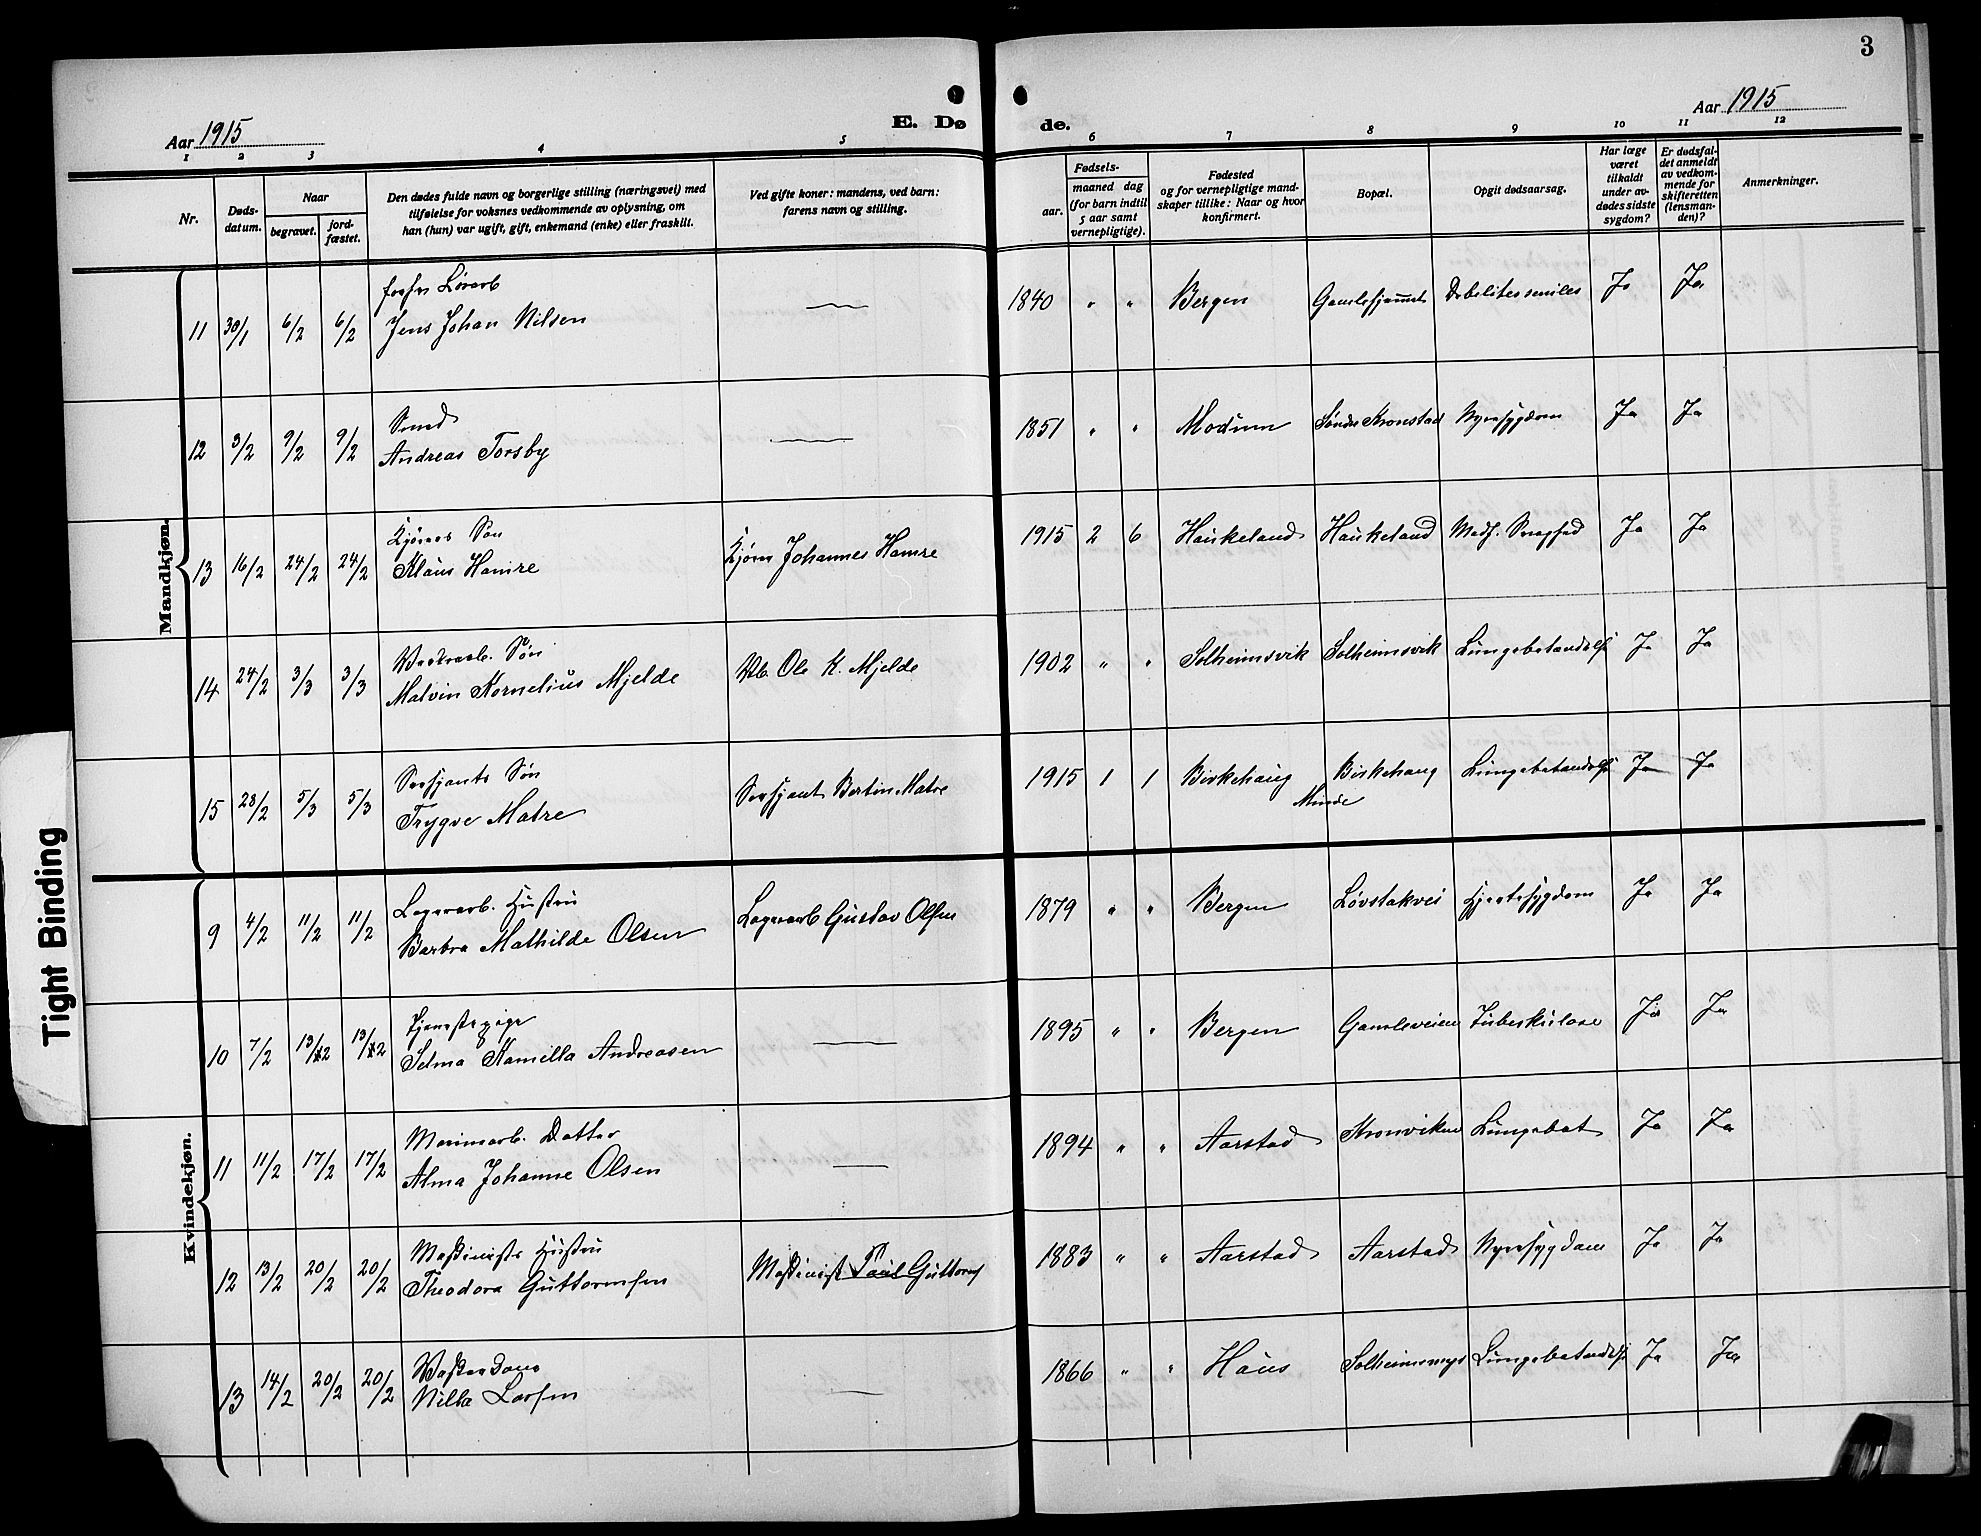 3
Aar 1915
E. Dø
de.
Aar 1915
1 2 3 4 5 6 7 8 9 10 11 12
Nr.
Døds-
datum.
Naar
begravet.
jord-
fæstet.
Den dødes fulde navn og borgerlige stilling (næringsvei) med
tilføielse for voksnes vedkommende av oplysning, om
han (hun) var ugift, gift, enkemand (enke) eller fraskilt.
Ved gifte koner: mandens, ved barn:
farens navn og stilling.
Fødsels-
aar.
maaned dag
(for barn indtil
5 aar samt
vernepligtige).
Fødested
og for vernepligtige mand-
skaper tillike: Naar og hvor
konfirmert.
Bopæl.
Opgit dødsaarsag.
Har læge
været
tilkaldt
under av-
dødes sidste
sygdom?
Er dødsfal-
det anmeldt
av vedkom-
mende for
skifteretten
(lensman-
den)?
Anmerkninger.
Mandkjøn.
11 30/1 6/2 6/2 Jens Johan Nilsen — 1840 " " Bergen Gamlehjemmet Debilitas seniles Ja Ja
Smed
12 3/2 9/2 9/2 Andreas Torsby — 1851 " " Modum Søndre Kronstad Nyresygdom Ja Ja
Kjøreres Søn
13 16/2 24/2 24/2 Klaus Hamre Kjører Johannes Hamre 1915 2 6 Haukeland Haukeland Medf. Svaghed Ja Ja
Søn
14 24/2 3/3 3/3 Malvin Kornelius Mjelde Vb. Ole K. Mjelde 1902 " " Solheimsvik Solheimsvik Lungebetændelse Ja Ja
Sersjants Søn
15 28/2 5/3 5/3 Trygve Matre Sersjant Bertin Matre 1915 1 1 Birkehaug Birkehaug Lungebetændelse Ja Ja
Minde
Kvindekjøn.
Lagerarb. Hustru
9 4/2 11/2 11/2 Barbra Mathilde Olsen Lagerarb Gustav Olsen 1879 " " Bergen Løvstakvei Hjertesygdom Ja Ja
Tjenestepige
10 7/2 13/2 13/2 Selma Kamilla Andreasen — 1895 " " Bergen Gamleveien Tuberkulose Ja Ja
Datter
11 11/2 17/2 17/2 Alma Johanne Olsen — 1894 " " Aarstad Kronviken Lungebet Ja Ja
Maskinists Hustru
12 13/2 20/2 20/2 Theodora Guttormsen Maskinist Paul Guttorms 1883 " " Aarstad Aarstad Nyresygdom Ja Ja
13 14/2 20/2 20/2 Nilla Larsen — 1866 " " Haus Solheimsmyr Lungebetændelse Ja Ja
Tight Binding